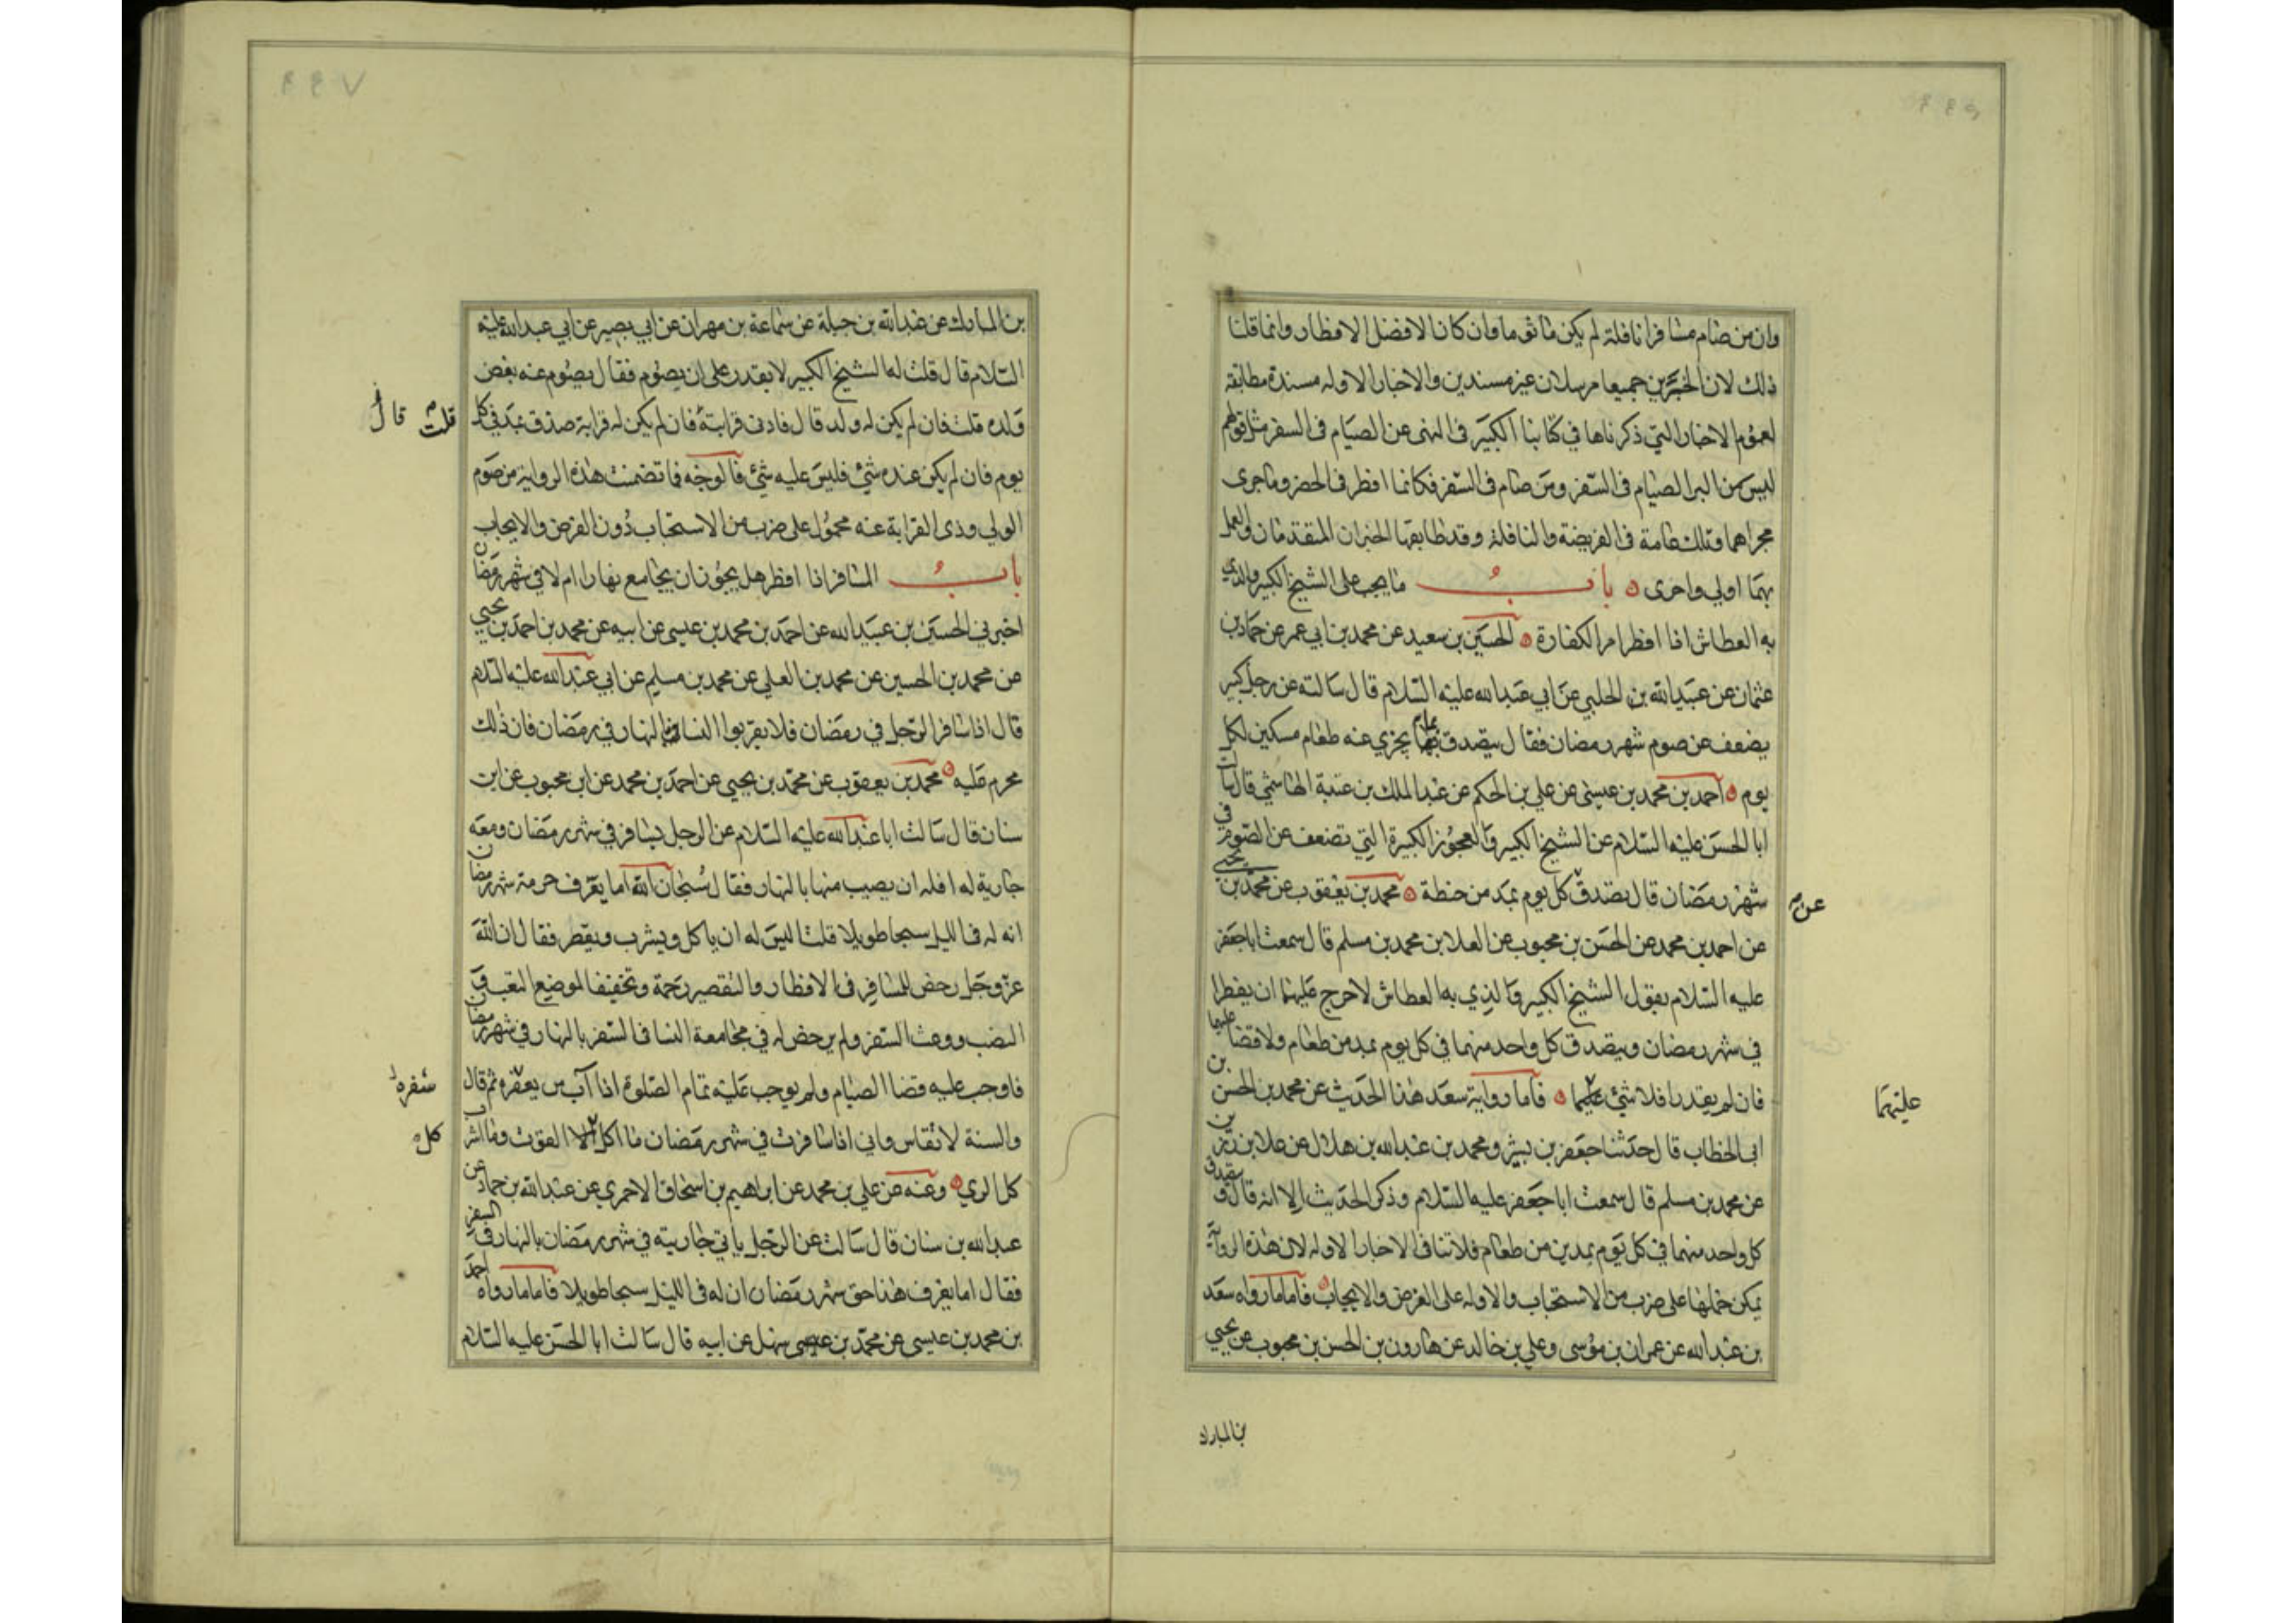 وان من صام مسافرا نافلة لم يكن مأثوما وان كان الافضل الافطار وانما قلنا
ذلك لان الخبرين جميعا مرسلان غير مسندين والاخبار الاوله مسندة مطابقة
لعموم الاخبار التي ذكرناها في كتابنا الكبير في النهى عن الصيام في السفر مثل قولهم
ليس من البر الصيام في السفر ومن صام في السفر فكانما افطر في الحضر وما جرى
مجراهما وتلك عامة في الفريضة والنافلة وقد طابقها الخبران المتقدمان والعمل
بهما اولى واحرى ٥ باب ما يجب على الشيخ الكبير والذي
به العطاش اذا افطرا من الكفارة ٥ الحسين بن سعيد عن محمد بن ابي عمير عن حماد بن
عثمان عن عبيد الله بن الحلبي عن ابي عبد الله عليه السلام قال سالته عن رجل كبير
يضعف عن صوم شهر رمضان فقال يتصدق بما يجزي عنه طعام مسكين لكل
يوم ٥ احمد بن محمد بن عيسى عن علي بن الحكم عن عبد الملك بن عتبة الهاشمي قال سالت
ابا الحسن عليه السلام عن الشيخ الكبير والعجوز الكبيرة التي تضعف عن الصوم في
شهر رمضان قال تصدق كل يوم بمد من حنطة ٥ محمد بن يعقوب عن محمد بن يحيى
عن
عن احمد بن محمد عن الحسن بن محبوب عن العلا بن محمد بن مسلم قال سمعت ابا جعفر
عليه السلام يقول الشيخ الكبير والذي به العطاش لاحرج عليهما ان يفطرا
في شهر رمضان ويتصدق كل واحد منهما في كل يوم بمد من طعام ولا قضا عليهما
فان لم يقدرا فلا شئ عليهما ٥ فاما رواية سعد هذا الحديث عن محمد بن الحسن بن
عليهما
ابي الخطاب قال حدثنا جعفر بن بشير ومحمد بن عبد الله بن هلال عن علا بن رزين
عن محمد بن مسلم قال سمعت ابا جعفر عليه السلام وذكر الحديث الا انه قال ويتصدق
كل واحد منهما في كل يوم بمدين من طعام فلا تنافى الاخبار الاوله لان هذه الرواية
يمكن حملها على ضرب من الاستحباب والاوله على الفرض والايجاب ٥ فاما ما رواه سعد
بن عبد الله عن عمران بن موسى وعلي بن خالد عن هارون بن الحسن بن محبوب عن يحيى
بن المبارك
بن المبارك عن عبد الله بن جبلة عن سماعة بن مهران عن ابي بصير عن ابي عبد الله عليه
السلام قال قلت له الشيخ الكبير لا يقدر على ان يصوم فقال يصوم عنه بعض
ولده قلت فان لم يكن له ولد قال فادنى قرابته فان لم يكن له قرابة صدق بمد في كل
قلت قال
يوم فان لم يكن عنده شئ فليس عليه شئ فالوجه فما تضمنت هذه الرواية من صوم
الولي وذى القرابة عنه محمول على ضرب من الاستحباب دون الفرض والايجاب
باب المسافر اذا افطر هل يجوز ان يجامع نهارا ام لا في شهر رمضان
اخبرني الحسين بن عبيد الله عن احمد بن محمد بن عيسى عن ابيه عن محمد بن احمد بن يحيى
عن محمد بن الحسين عن محمد بن العلي عن محمد بن مسلم عن ابي عبد الله عليه السلام
قال اذا سافر الرجل في رمضان فلا يقربوا النسا بالنهار في رمضان فان ذلك
محرم عليه ٥ محمد بن يعقوب عن محمد بن يحيى عن احمد بن محمد عن ابن محبوب عن ابن
سنان قال سالت ابا عبد الله عليه السلام عن الرجل يسافر في شهر رمضان ومعه
جارية له افله ان يصيب منها بالنهار فقال سبحان الله اما يعرف حرمة شهر رمضان
انه له في الليل سبحا طويلا قلت اليس له ان ياكل ويشرب ويقصر فقال ان الله
عز وجل رخص للمسافر في الافطار والتقصير رحمة وتخفيفا لموضع التعب و
النصب ووعث السفر ولم يرخص له في مجامعة النسا في السفر بالنهار في شهر رمضان
فاوجب عليه قضا الصيام ولم يوجب عليه تمام الصلوة اذا آب من سفره ثم قال
سفره
والسنة لا تقاس واني اذا سافرت في شهر رمضان ما اكل الا القوت وما اشرب
كل
كل الري ٥ وعنه عن علي بن محمد عن ابراهيم بن اسحاق الاحمري عن عبد الله بن حماد عن
عبد الله بن سنان قال سالت عن الرجل ياتي جاريته في شهر رمضان بالنهار في السفر
فقال اما يعرف هذا حق شهر رمضان ان له في الليل سبحا طويلا فاما ما رواه احمد
بن محمد بن عيسى عن محمد بن سهل عن ابيه قال سالت ابا الحسن عليه السلام